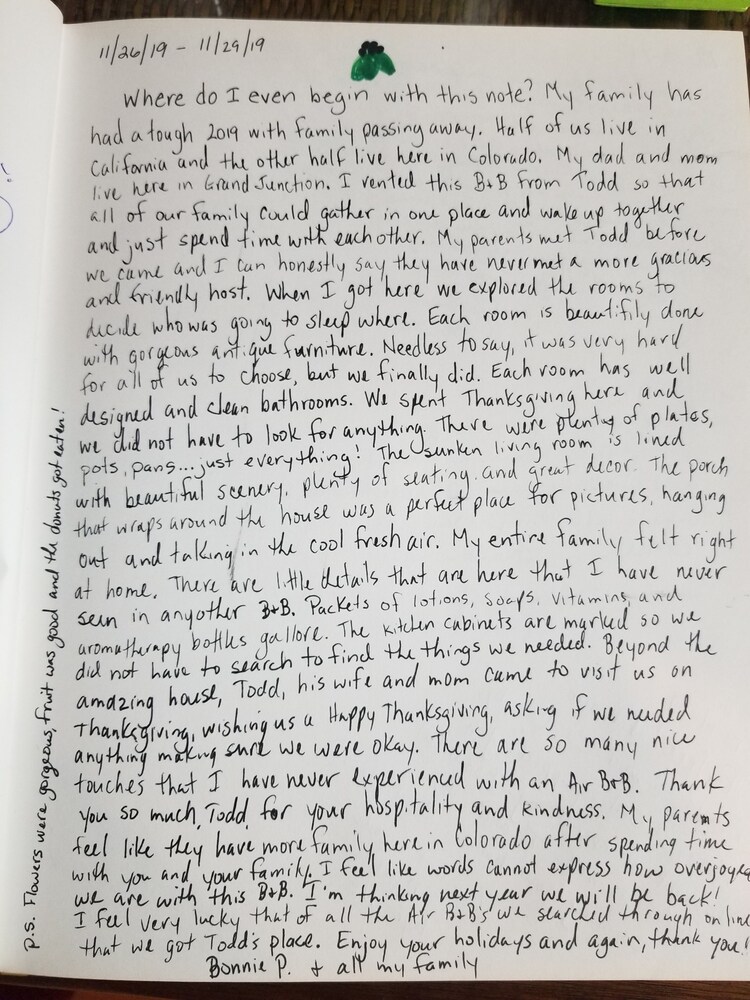 11/26/19 - 11/29/19
Where do I even begin with this note? My family has
had a tough 2019 with family passing away. Half of us live in
California and the other half live here in Colorado. My dad and mom
live here in Grand Junction. I rented this B+B from Todd so that
all of our family could gather in one place and wake up together
and just spend time with each other. My parents met Todd before
we came and I can honestly say they have never met a more gracious
and friendly host. When I got here we explored the rooms to
decide who was going to sleep where. Each room is beautifily done
with gorgeous antique furniture. Needless to say, it was very hard
for all of us to choose, but we finally did. Each room has well
designed and clean bathrooms. We spent Thanksgiving here and
we did not have to look for anything. There were plenty of plates,
pots, pans... just everything! The sunken living room is lined
with beautiful scenery, plenty of seating and great decor. The porch
that wraps around the house was a perfect place for pictures, hanging
out and talking in the cool fresh air. My entire family felt right
at home. There are little details that are here that I have never
seen in anyother B+B. Packets of lotions, soaps, vitamins and
aromatherapy bottles gallore. The kitchen cabinets are marked so we
did not have to search to find the things we needed. Beyond the
amazing house, Todd, his wife and mom came to visit us on
Thanksgiving, wishing us a Happy Thanksgiving, asking if we needed
anything making sure we were okay. There are so many nice
touches that I have never experienced with an Air B+B. Thank
you so much, Todd, for your hospitality and kindness. My parents
feel like they have more family here in Colorado after spending time
with you and your family. I feel like words cannot express how overjoyed
we are with this B+B. I'm thinking next year we will be back!
I feel very lucky that of all the Air B+B's we searched through online
that we got Todd's place. Enjoy your holidays and again, thank you!!
Bonnie P. + all my family
p.s. Flowers were gorgeous, fruit was good and the donuts got eaten!